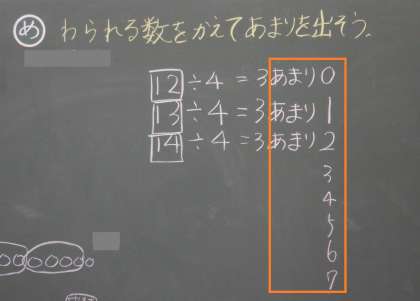 め わられる数をかえてあまりを出そう。
12÷4=3あまり0
13÷4=3あまり1
14÷4=3あまり2
3
4
5
6
7